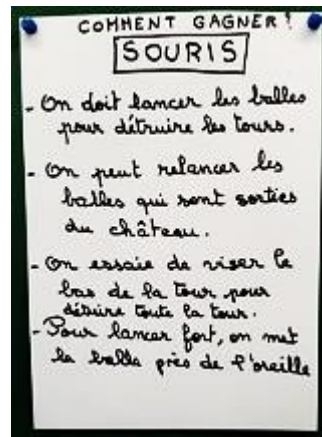 COMMENT GAGNER ?
SOURIS
- On doit lancer les balles
pour détruire les tours.
- On peut relancer les
balles qui sont sorties
du château.
- On essaie de viser le
bas de la tour pour
détruire toute la tour.
- Pour lancer fort, on met
la balle près de l'oreille